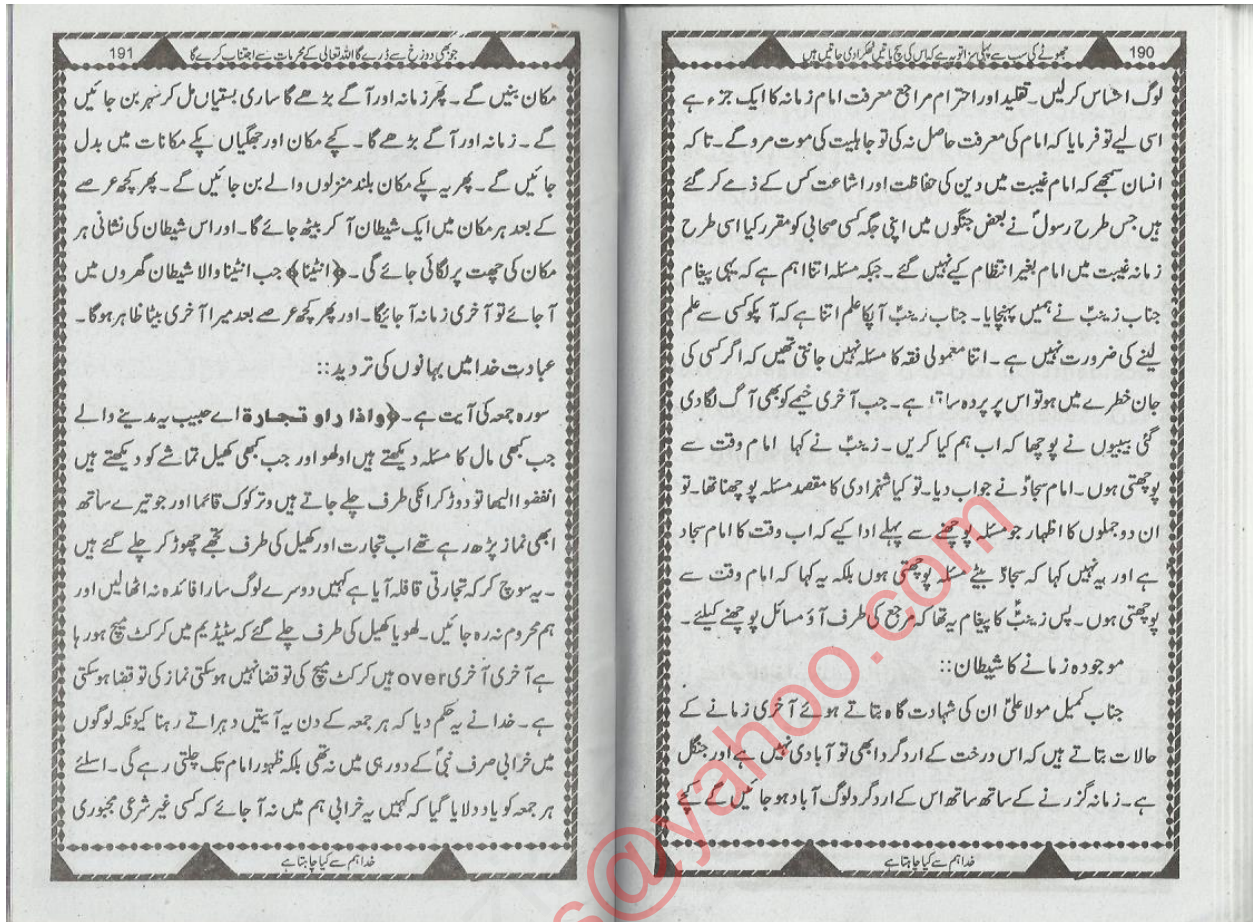 190
جھوٹے کی سب سے پہلی سزا تو یہ ہے کہ اس کی سچ باتیں ٹھکرا دی جاتیں ہیں
لوگ احساس کرلیں۔ تقلید اور احترام مراجع معرفت امام زمانہ کا ایک جزء ہے
اسی لیے تو فرمایا کہ امام کی معرفت حاصل نہ کی تو جاہلیت کی موت مروگے۔ تاکہ
انسان سمجھے کہ امام غیبت میں دین کی حفاظت اور اشاعت کس کے ذمے کر گئے
ہیں جس طرح رسولؐ نے بعض جنگوں میں اپنی جگہ کسی صحابی کو مقرر کیا اسی طرح
زمانہ غیبت میں امام بغیر انتظام کیے نہیں گئے۔ جبکہ مسئلہ اتنا اہم ہے کہ یہی پیغام
جناب زینبؑ نے ہمیں پہنچایا۔ جناب زینبؑ آپکا علم اتنا ہے کہ آپکو کسی سے علم
لینے کی ضرورت نہیں ہے۔ اتنا معمولی فقہ کا مسئلہ نہیں جانتی تھیں کہ اگر کسی کی
جان خطرے میں ہو تو اس پر پردہ ساقط ہے۔ جب آخری خیمے کو بھی آگ لگا دی
گئی بیبیوں نے پوچھا کہ اب ہم کیا کریں۔ زینبؑ نے کہا امام وقت سے
پوچھتی ہوں۔ امام سجادؑ نے جواب دیا۔ تو کیا شہزادی کا مقصد مسئلہ پوچھنا تھا۔ تو
ان دو جملوں کا اظہار جو مسئلہ پوچھنے سے پہلے ادا کیے کہ اب وقت کا امام سجاد
ہے اور یہ نہیں کہا کہ سجادؑ بیٹے مسئلہ پوچھتی ہوں بلکہ یہ کہا کہ امام وقت سے
پوچھتی ہوں۔ پس زینبؑ کا پیغام یہ تھا کہ مرجع کی طرف آؤ مسائل پوچھنے کیلئے۔
موجودہ زمانے کا شیطان::
جناب کمیل مولا علیؑ ان کی شہادت گاہ بتاتے ہوئے آخری زمانے کے
حالات بتاتے ہیں کہ اس درخت کے اردگرد ابھی تو آبادی نہیں ہے اور جنگل
ہے۔ زمانہ گزرنے کے ساتھ ساتھ اس کے اردگرد لوگ آباد ہو جائیں گے کچے
خدا ہم سے کیا چاہتا ہے
191
جو بھی دوزخ سے ڈرے گا اللہ تعالیٰ کے محرمات سے اجتناب کرے گا
مکان بنیں گے۔ پھر زمانہ اور آگے بڑھے گا ساری بستیاں مل کر شہر بن جائیں
گے۔ زمانہ اور آگے بڑھے گا۔ کچے مکان اور جھگیاں پکے مکانات میں بدل
جائیں گے۔ پھر یہ پکے مکان بلند منزلوں والے بن جائیں گے۔ پھر کچھ عرصے
کے بعد ہر مکان میں ایک شیطان آکر بیٹھ جائے گا۔ اور اس شیطان کی نشانی ہر
مکان کی چھت پر لگائی جائے گی۔ ﴿انٹینا﴾ جب انٹینا والا شیطان گھروں میں
آجائے تو آخری زمانہ آجائیگا۔ اور پھر کچھ عرصے بعد میرا آخری بیٹا ظاہر ہوگا۔
عبادت خدا میں بہانوں کی تردید::
سورہ جمعہ کی آیت ہے۔ ﴿واذا راو تجارۃ اے حبیب یہ مدینے والے
جب کبھی مال کا مسئلہ دیکھتے ہیں اولھو اور جب کبھی کھیل تماشے کو دیکھتے ہیں
انفضوا الیھا تو دوڑ کر انکی طرف چلے جاتے ہیں وترکوک قائما اور جو تیرے ساتھ
ابھی نماز پڑھ رہے تھے اب تجارت اور کھیل کی طرف تجھے چھوڑ کر چلے گئے ہیں
۔ یہ سوچ کر کہ تجارتی قافلہ آیا ہے کہیں دوسرے لوگ سارا فائدہ نہ اٹھالیں اور
ہم محروم نہ رہ جائیں۔ لھو یا کھیل کی طرف چلے گئے کہ سٹیڈیم میں کرکٹ میچ ہورہا
ہے آخری آخری over ہیں کرکٹ میچ کی تو قضا نہیں ہوسکتی نماز کی تو قضا ہوسکتی
ہے۔ خدا نے یہ حکم دیا کہ ہر جمعہ کے دن یہ آیتیں دہراتے رہنا کیونکہ لوگوں
میں خرابی صرف نبیؐ کے دور ہی میں نہ تھی بلکہ ظہور امام تک چلتی رہے گی۔ اسلئے
ہر جمعہ کو یاد دلایا گیا کہ کہیں یہ خرابی ہم میں نہ آجائے کہ کسی غیر شرعی مجبوری
خدا ہم سے کیا چاہتا ہے
s@yahoo.com